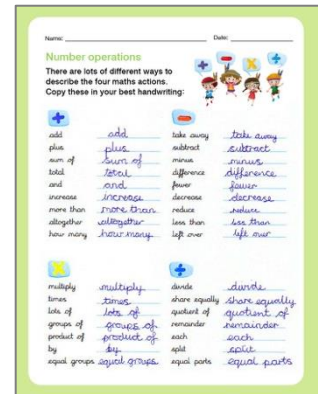 Name: Date:
Number operations
There are lots of different ways to
describe the four maths actions.
Copy these in your best handwriting:
+
add add
plus plus
sum of sum of
total total
and and
increase increase
more than more than
altogether altogether
how many how many
−
take away take away
subtract subtract
minus minus
difference difference
fewer fewer
decrease decrease
reduce reduce
less than less than
left over left over
×
multiply multiply
times times
lots of lots of
groups of groups of
product of product of
by by
equal groups equal groups
÷
divide divide
share equally share equally
quotient of quotient of
remainder remainder
each each
split split
equal parts equal parts